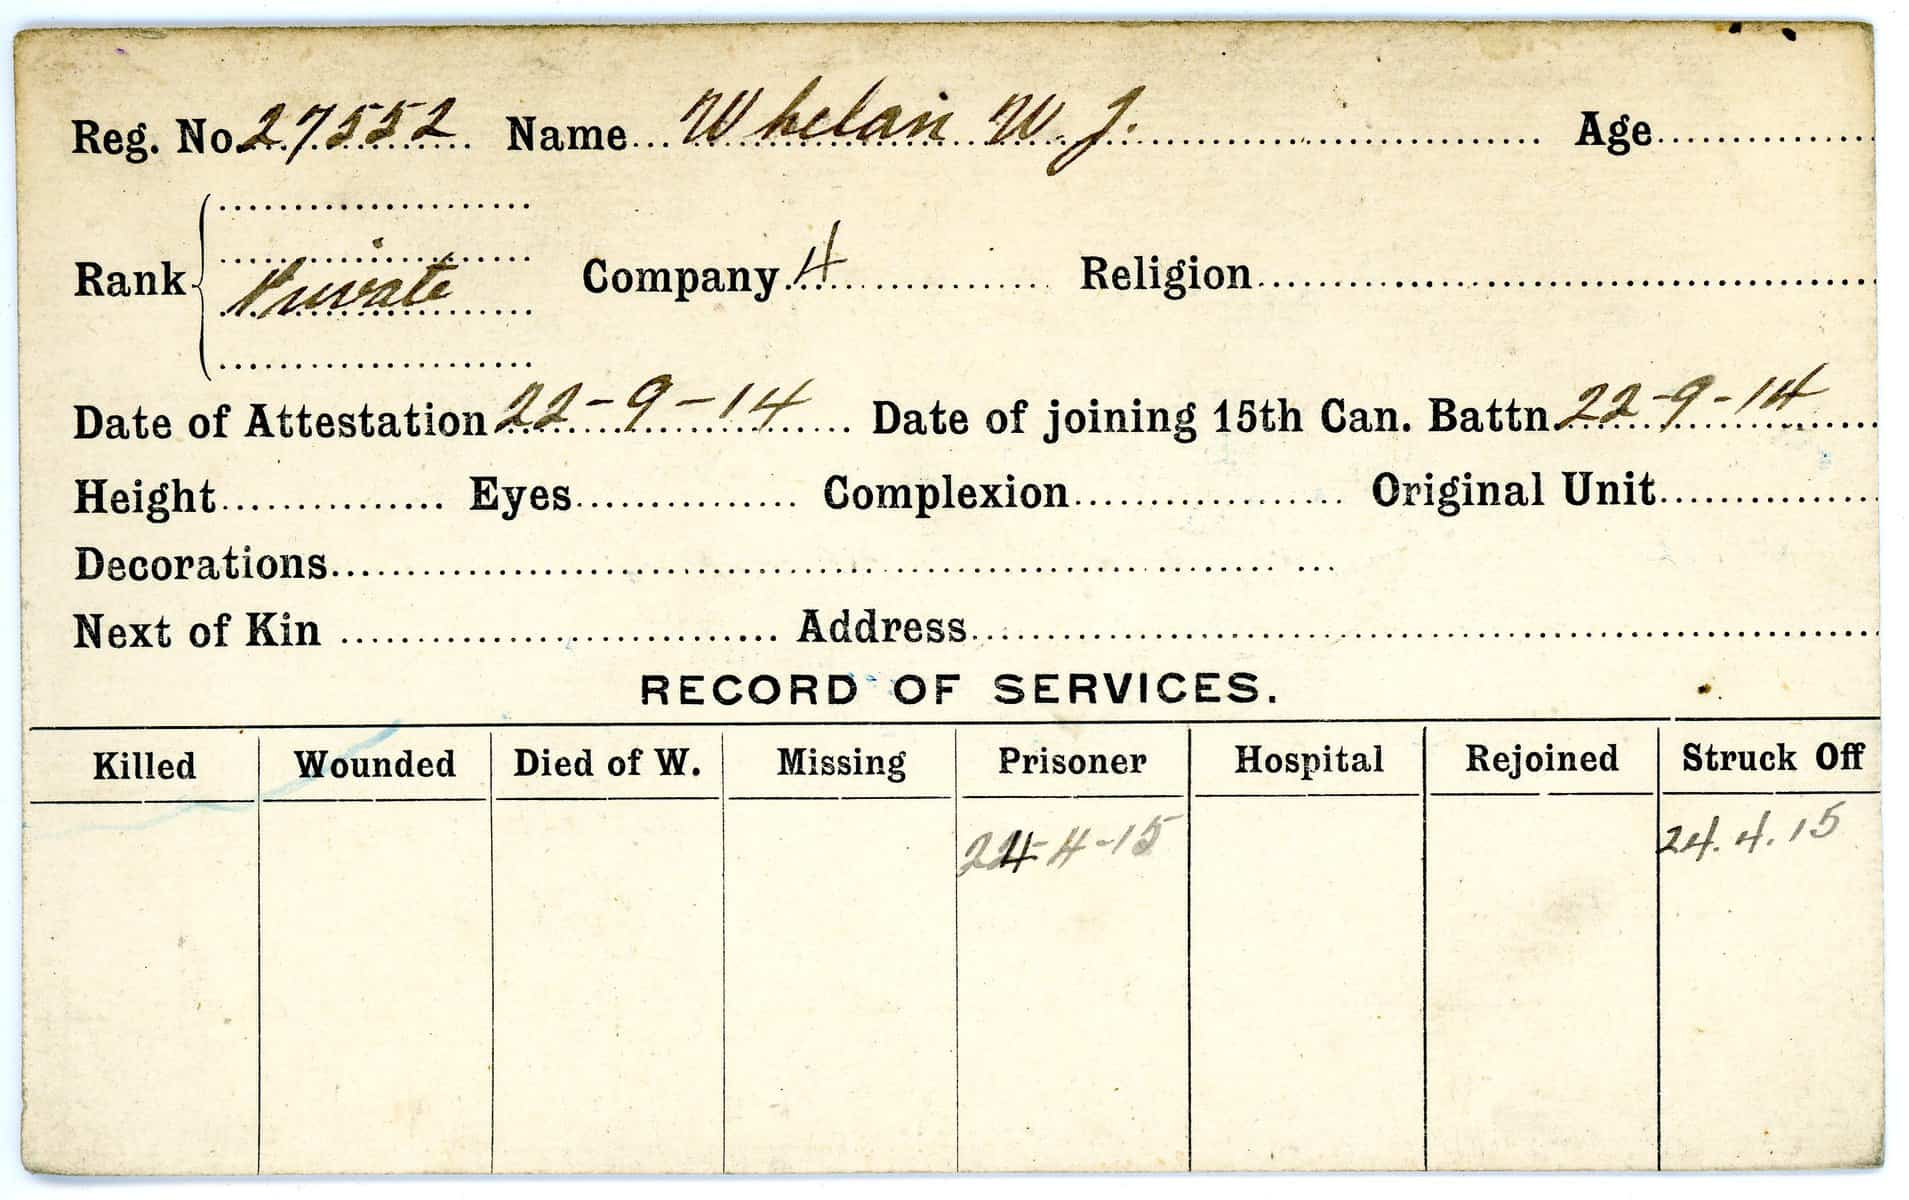 Reg. No. 27552 Name Whelan W. J. Age
Rank Private Company 4 Religion
Date of Attestation 22-9-14 Date of joining 15th Can. Battn. 22-9-14
Height Eyes Complexion Original Unit
Decorations
Next of Kin Address
RECORD OF SERVICES.
Killed Wounded Died of W. Missing Prisoner Hospital Rejoined Struck Off
24-4-15 24.4.15